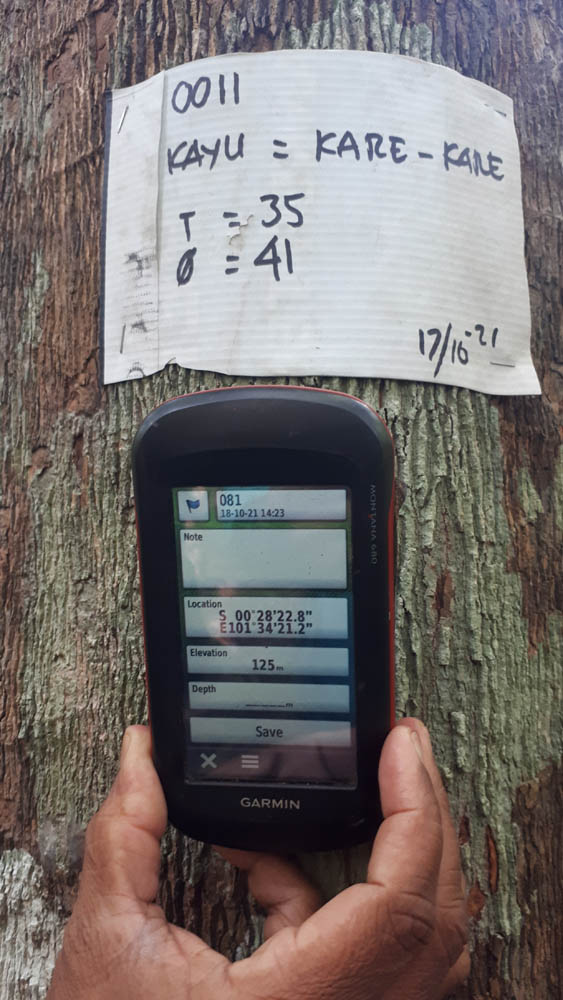 0011
KAYU = KARE-KARE
T = 35
Ø = 41
17/10-21
MONTANA 680
081
18-10-21 14:23
Note
Location
S 00°28'22.8"
E101°34'21.2"
Elevation
125m
Depth
_____m
Save
GARMIN